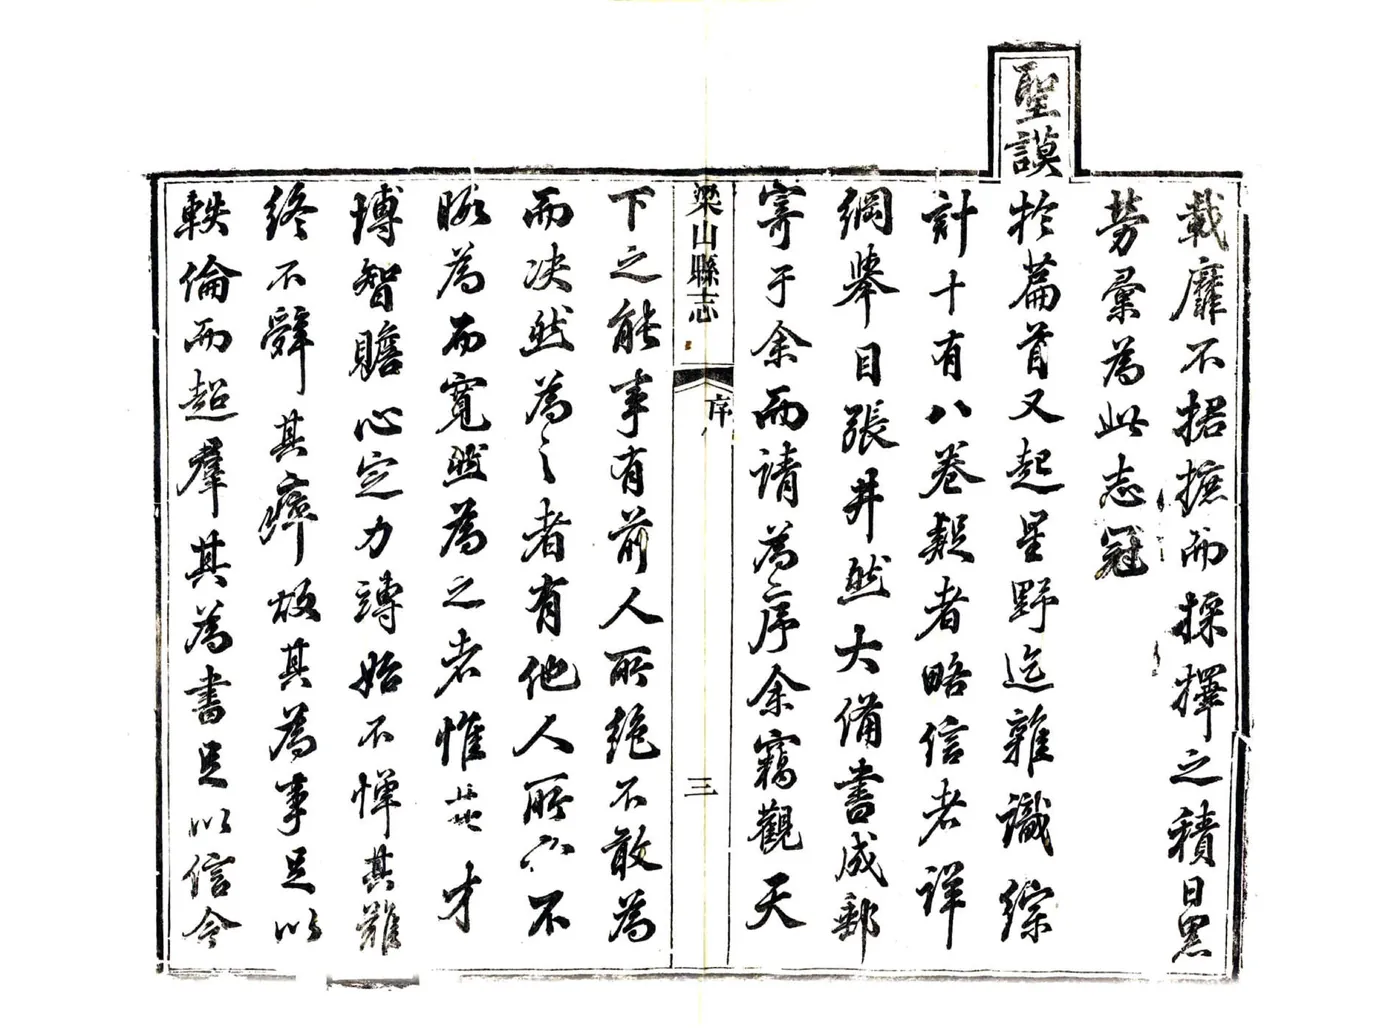 載靡不捃摭而採擇之積日累
勞彙為此志冠
聖謨於篇首又起星野迄雜識綜
計十有八卷疑者略信者詳
綱舉目張井然大備書成郵
寄于余而請為序余竊觀天
梁山縣志
序
三
下之能事有前人所絶不敢為
而决然為之者有他人所不
暇為而寬然為之者惟其才
博智贍心定力專始不憚其難
終不辭其瘁故其為事足以
軼倫而超羣其為書足以信今